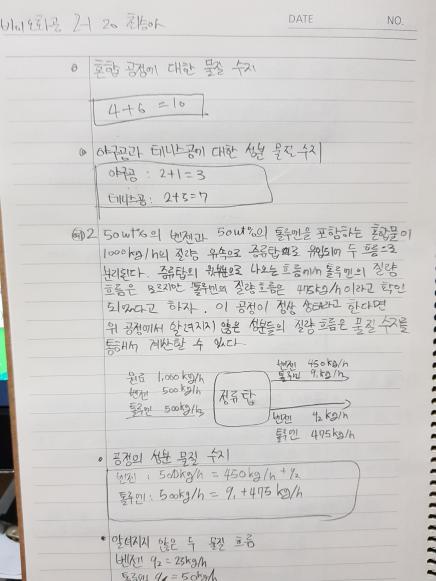 바이오화공 2-1 20 최승아
DATE NO.
혼합 공정에 대한 물질 수지
4+6 =10
야구공과 테니스공에 대한 성분 물질 수지
야구공 : 2+1=3
테니스공 : 2+5=7
예제) 2 50wt%의 벤젠과 50wt%의 톨루엔을 포함하는 혼합물이
1000kg/h의 질량 유속으로 증류탑으로 유입되어 두 흐름으로
분리된다. 증류탑의 윗부분으로 나오는 흐름에서 톨루엔의 질량
흐름은 모르지만 톨루엔의 질량 흐름은 475kg/h이라고 확인
되었다고 하자. 이 공정이 정상 상태라고 한다면
위 공정에서 알려지지 않은 성분들의 질량 흐름은 물질 수지를
통해서 계산할 수 있다.
원료 1,000kg/h
벤젠 500kg/h
톨루엔 500kg/h
정류탑
벤젠 450kg/h
톨루엔 q₁kg/h
벤젠 q₂kg/h
톨루엔 475kg/h
• 공정의 성분 물질 수지
벤젠 : 500kg/h = 450kg/h + q₂
톨루엔 : 500kg/h = q₁ + 475 kg/h
• 알려지지 않은 두 물질 흐름
벤젠 q₂ = 25kg/h
톨루엔 = 50kg/h